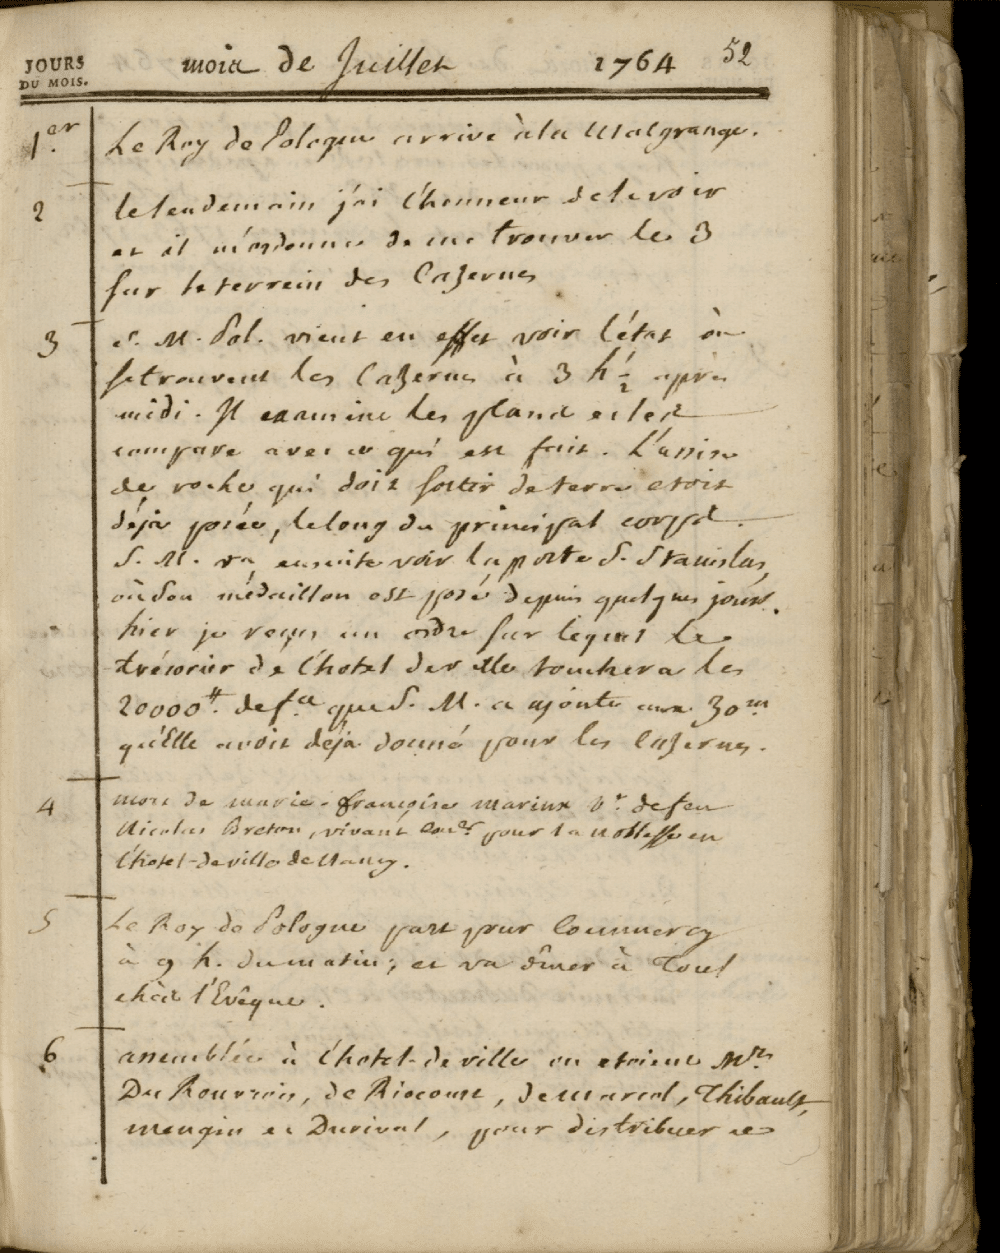 JOURS DU MOIS. mois de Juillet 1764 52
1.er Le Roy de Pologne arrive à la Malgrange.
2 le lendemain j'ai l'honneur de le voir
et il m'ordonne de me trouver le 3
sur le terrein des Cazernes
3 S. M. Pol. vient en effet voir l'état où
se trouvent les Cazernes à 3 h 1/2 après
midi. Il examine les plans et les
compare avec ce qui est fait. L'assise
de roche qui doit sortir de terre etoit
déja posée, le long du principal corps.
S. M. va ensuite voir la porte S. Stanislas,
où son médaillon est posé depuis quelques jours.
hier je reçus un ordre sur lequel le
trésorier de l'hotel de ville touchera les
20000 ₶. de f.ce que S. M. a ajouté aux 30 m
qu'Elle avoit déja donné pour les Cazernes.
4 mort de marie-françoise marinx v.e de feu
Nicolas Breton, vivant con.er pour la noblesse en
l'hotel-de ville de Nancy.
5 Le Roy de Pologne part pour Commercy
à 9 h. du matin; et va dîner à Toul
chés l'Evêque.
6 assemblée à l'hotel-de ville où etoient Mrs
Du Rouvrois, de Riocourt, de Marcol, Thibault,
mengin et Durival, pour distribuer le